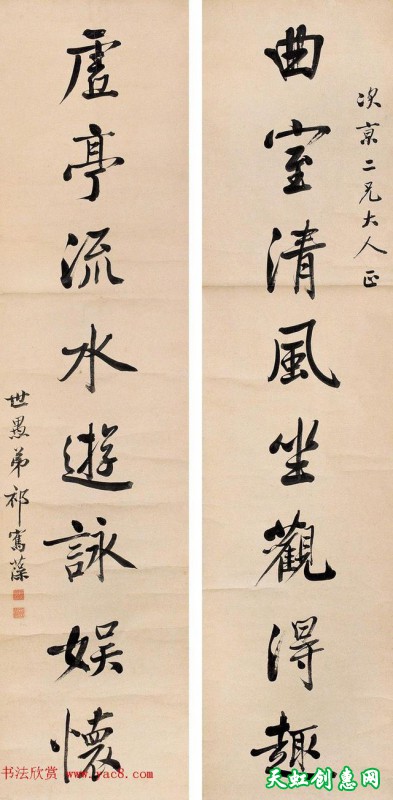 次京二兄大人正
曲室清風坐觀得趣
虛亭流水遊詠娛懷
世愚弟祁寯藻
书法欣赏 www.yac8.com
天虹创惠网